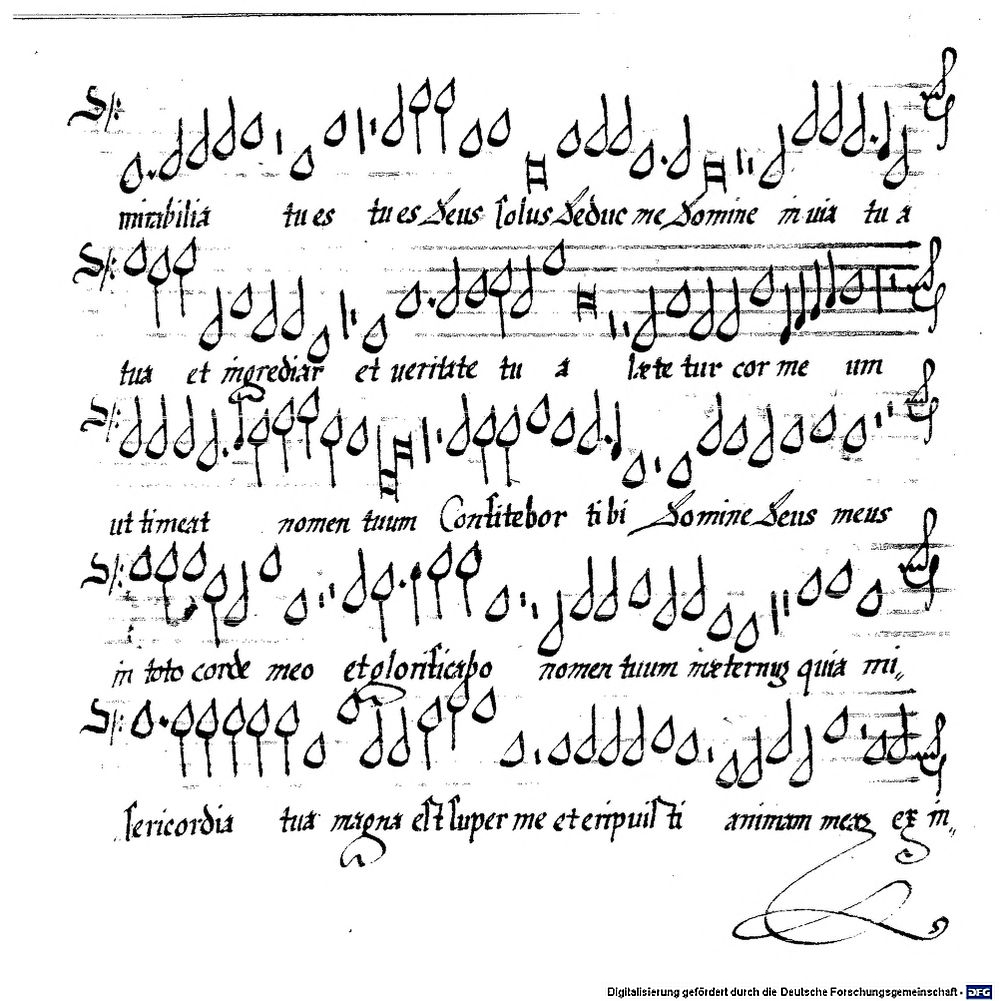 mirabilia tu es tu es Deus solus Deduc me Domine in via tu a
tua et ingrediar et veritate tu a lætetur cor me um
ut timeat nomen tuum Confitebor tibi Domine Deus meus
in toto corde meo et glorificabo nomen tuum in æternuz quia mi„
sericordia tua magna est super me et eripuisti animam meaz ex in„
Digitalisierung gefördert durch die Deutsche Forschungsgemeinschaft - DFG